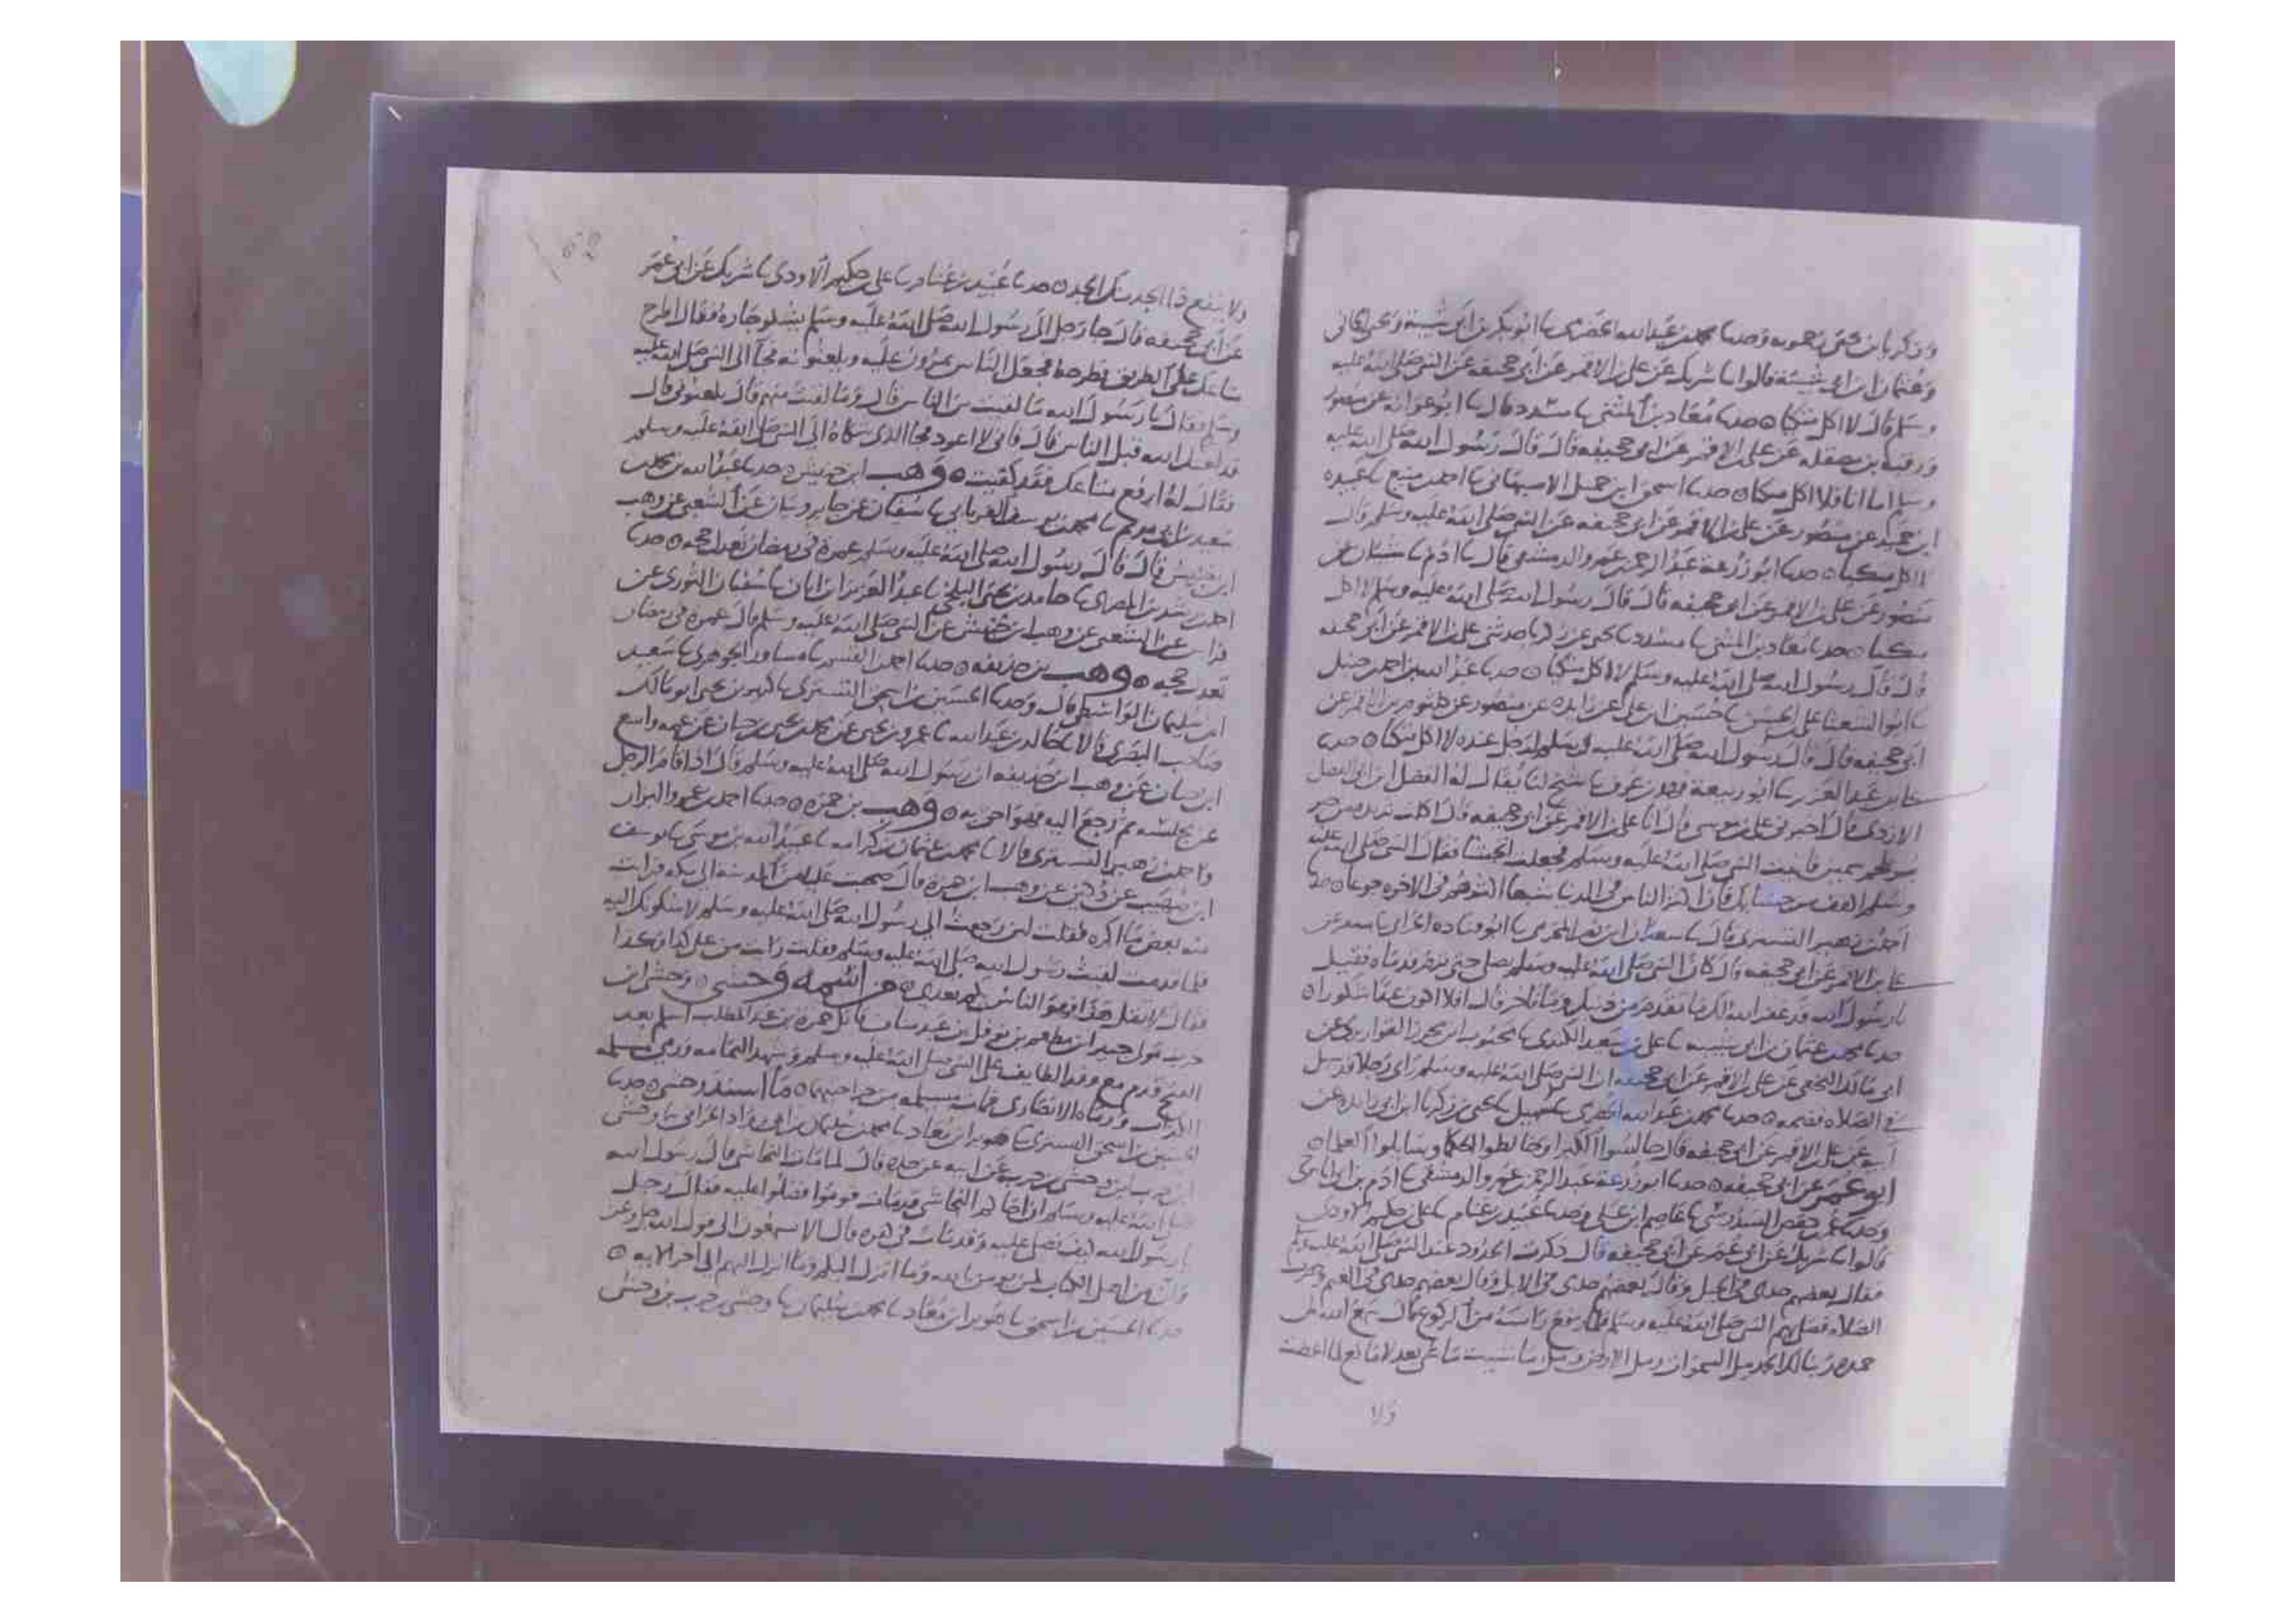 وزكريا بن يحيى زحمويه وحدثنا محمد بن عبد الله الحضرمي ثنا ابو بكر بن ابي شيبة
وعثمان ابن ابي شيبة قالوا ثنا شريك عن علي بن الاقمر عن ابي جحيفه عن النبي صلى الله عليه
وسلم قال لا اكل متكيا ٥ حدثنا معاذ بن المثنى ثنا مسدد قال ثنا ابو عوانه عن
ورقبة بن مصقله عن علي بن الاقمر عن ابي جحيفه قال قال رسول الله صلى الله عليه
وسلم اما انا فلا اكل متكيا ٥ حدثنا اسحق ابن جميل الاصبهاني ثنا احمد بن منيع ثنا عبيده
ابن حميد عن منصور عن علي بن الاقمر عن ابي جحيفه عن النبي صلى الله عليه وسلم قال
لا اكل متكيا ٥ حدثنا ابو زرعة عبد الرحمن بن عمرو الدمشقي قال ثنا ادم ثنا شيبان عن
منصور عن علي بن الاقمر عن ابي جحيفه قال قال رسول الله صلى الله عليه وسلم لا اكل
متكيا ٥ حدثنا معاذ بن المثنى ثنا مسدد ثنا يحيى عن زكريا حدثني علي بن الاقمر عن ابي جحيفه
قال قال رسول الله صلى الله عليه وسلم لا اكل متكيا ٥ حدثنا عبد الله بن احمد بن حنبل
ثنا ابو الشعثا علي بن الحسن ثنا حسين ابن علي عن زايده عن منصور عن كلثوم بن الاقمر عن
ابي جحيفه قال قال رسول الله صلى الله عليه وسلم لرجل عنده لا اكل متكيا ٥ حدثنا
علي بن عبد العزيز ثنا ابو ربيعة فهد بن عوف ثنا شيخ لنا يقال له الفضل ابن ابي الفضل
الازدي قال اخبرني عمر بن موسى قال انا علي بن الاقمر عن ابي جحيفه قال اكلت ثريده من خبز
بر ولحم سمين فاتيت النبي صلى الله عليه وسلم فجعلت اتجشا فقال النبي صلى الله عليه
وسلم اكفف من جشايك فان اكثر الناس في الدنيا شبعا اكثرهم في الاخره جوعا ٥ حدثنا
احمد بن زهير التستري قال ثنا سعدان ابن نصر المخرمي ثنا ابو قتاده الحراني ثنا مسعر عن
علي بن الاقمر عن ابي جحيفه قال كان النبي صلى الله عليه وسلم يصلي حتى تفطر قدماه فقيل
يا رسول الله قد غفر الله لك ما تقدم من ذنبك وما تاخر قال افلا اكون عبدا شكورا ٥
حدثنا محمد بن عثمان بن ابي شيبه ثنا علي بن سعد الكندي ثنا محبوب ابن محرز القواريري عن
ابي مالك النخعي عن علي بن الاقمر عن ابي جحيفه ان النبي صلى الله عليه وسلم راى رجلا قد سدل
في الصلاه فضمه ٥ حدثنا محمد بن عبد الله الحضرمي ثنا سهيل ثنا يحيى بن زكريا ابن ابي زائده عن
ابيه عن علي بن الاقمر عن ابي جحيفه قال جالسوا الكبرا وخالطوا الحكما وسايلوا العلما ٥
ابو عمر عن ابي جحيفه ٥ حدثنا ابو زرعة عبد الرحمن بن عمرو الدمشقي ثنا ادم بن ابي اياس
وحدثنا عمر بن حفص السدوسي ثنا عاصم ابن علي وحدثنا عبيد بن غنام ثنا علي بن حكيم الاودي
قالوا ثنا شريك عن ابي عمر عن ابي جحيفه قال ذكرت الجدود عند النبي صلى الله عليه وسلم
فقال بعضهم جدي في الخيل وقال بعضهم جدي في الابل وقال بعضهم جدي في الغنم
الصلاه فصلى بهم النبي صلى الله عليه وسلم فلما رفع راسه من الركوع قال سمع الله لمن
حمده ربنا لك الحمد مل السموات ومل الارض ومل ما شيت من شي بعد لا مانع لما اعطيت
ولا
ولا ينفع ذا الجد منك الجد ٥ حدثنا عبيد بن غنام ثنا علي بن حكيم الاودي ثنا شريك عن ابي عمر
عن ابي جحيفه قال جا رجل الى رسول الله صلى الله عليه وسلم يشكو جاره فقال اطرح
متاعك على الطريق فطرحه فجعل الناس يمرون عليه ويلعنونه فجا الى النبي صلى الله عليه
وسلم فقال يا رسول الله ما لقيت من الناس قال وما لقيت منهم قال يلعنوني قال
قد لعنك الله قبل الناس قال فاني لا اعود فجا الذي شكاه الى النبي صلى الله عليه وسلم
فقال له ارفع متاعك فقد كفيت ٥ وهب ابن خنبش ٥ حدثنا عبد الله بن محمد بن
سعيد بن ابي مريم ثنا محمد بن يوسف الفريابي ثنا سفيان عن جابر وبيان عن الشعبي عن وهب
ابن خنبش قال قال رسول الله صلى الله عليه وسلم عمرة في رمضان تعدل حجه ٥ حدثنا
احمد بن رشدين المصري ثنا حامد بن يحيى البلخي ثنا عبد العزيز ابن ابان ثنا سفيان الثوري عن
فراس عن الشعبي عن وهب ابن خنبش عن النبي صلى الله عليه وسلم قال عمرة في رمضان
تعدل حجه ٥ وهب بن حذيفه ٥ حدثنا احمد بن القسم بن مساور الجوهري ثنا سعيد
ابن سليمان الواسطي قال وحدثنا الحسين بن اسحق التستري ثنا كثير بن يحيى ابو مالك
صاحب البصري قالا ثنا خالد بن عبد الله ثنا عمرو بن يحيى عن محمد بن يحيى بن حبان عن عمه واسع
ابن حبان عن وهب ابن حذيفه ان رسول الله صلى الله عليه وسلم قال اذا قام الرجل
عن مجلسه ثم رجع اليه فهو احق به ٥ وهب بن حمزه ٥ حدثنا احمد بن عمرو البزار
واحمد بن زهير التستري قالا ثنا محمد بن عثمان بن كرامه ثنا عبيد الله بن موسى ثنا يوسف
ابن صهيب عن دكين عن وهب ابن حمزة قال صحبت عليا من المدينة الى مكه فرايت
منه بعض ما اكره فقلت لين رجعت الى رسول الله صلى الله عليه وسلم لاشكونك اليه
فلما قدمت لقيت رسول الله صلى الله عليه وسلم فقلت رايت من علي كذا وكذا
فقال لا تقل هذا فهو اولى الناس بكم بعدي ٥ من اسمه وحشي ٥ وحشي ابن
حرب مولى جبير ابن مطعم بن نوفل بن عبد مناف قاتل حمزة بن عبد المطلب اسلم بعد
الفتح قدم مع وفد الطايف على النبي صلى الله عليه وسلم وشهد اليمامه ورمى مسيلمه
الكذاب ورماه الانصاري فمات مسيلمه من جراحتهما ٥ ما اسند وحشي ٥ حدثنا
الحسين بن اسحق التستري ثنا هوبر ابن معاذ ثنا محمد بن سليمان بن ابي داود الحراني ثنا وحشي
ابن حرب ابن وحشي بن حرب عن ابيه عن جده قال لما مات النجاشي قال رسول الله
صلى الله عليه وسلم ان اخاكم النجاشي قد مات قوموا فصلوا عليه فقال رجل
يا رسول الله كيف نصلي عليه وقد مات في كفره قال الا تسمعون الى قول الله عز وجل
وان من اهل الكتاب لمن يومن بالله وما انزل اليكم وما انزل اليهم الى اخر الايه ٥
حدثنا الحسين بن اسحق ثنا هوبر ابن معاذ ثنا محمد بن سليمان ثنا وحشي بن حرب بن وحشي